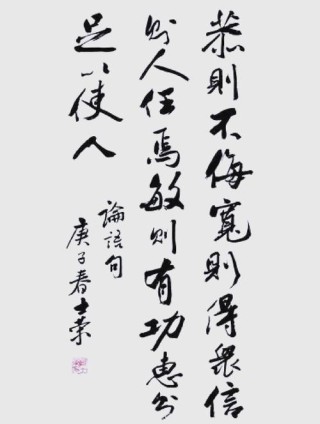 恭則不侮寬則得衆信
则人任焉敏则有功惠则
足以使人
論語句
庚子春士荣